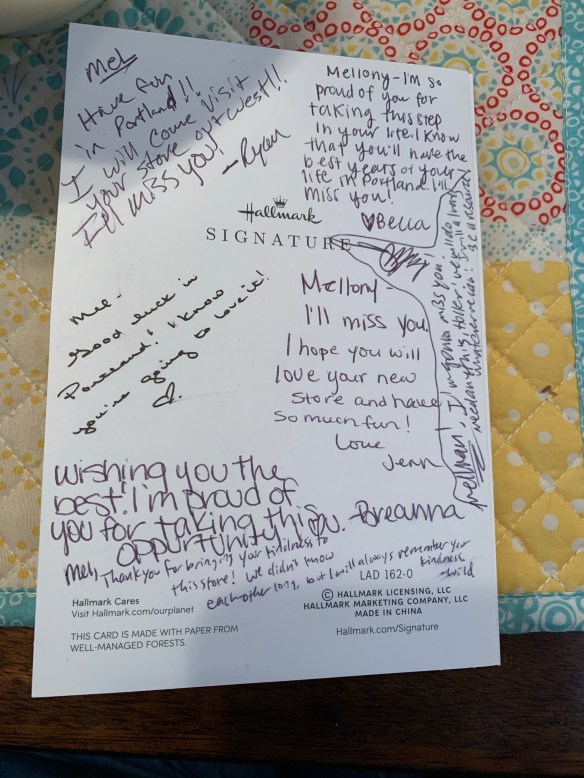 Mel
Have fun
in Portland!!
I will come visit
your store out west!!
I'll miss you!
—Ryan
Mellony-I'm so
proud of you for
taking this step
in your life. I know
that you'll have the
best years of your
life in Portland. I'll
miss you!
♡Bella
Hallmark
SIGNATURE
Mel-
Good luck in
Portland! I know
you're going to love it!
Mellony-
I'll miss you.
I hope you will
love your new
store and have
so much fun!
Love
Jenn
I'm gonna miss you!
need anything holler! we will do
whatever we can! I will
wishing you the
best. I'm proud of
you for taking this
oppurtunity. ♡u. -Breanna
Mel, Thank you for bringing your kindness to
this store! We didn't know
each other long, but I will always remember your
kindness
-Wild
LAD 162-0
Hallmark Cares
Visit Hallmark.com/ourplanet
THIS CARD IS MADE WITH PAPER FROM
WELL-MANAGED FORESTS.
© HALLMARK LICENSING, LLC
HALLMARK MARKETING COMPANY, LLC
MADE IN CHINA
Hallmark.com/Signature